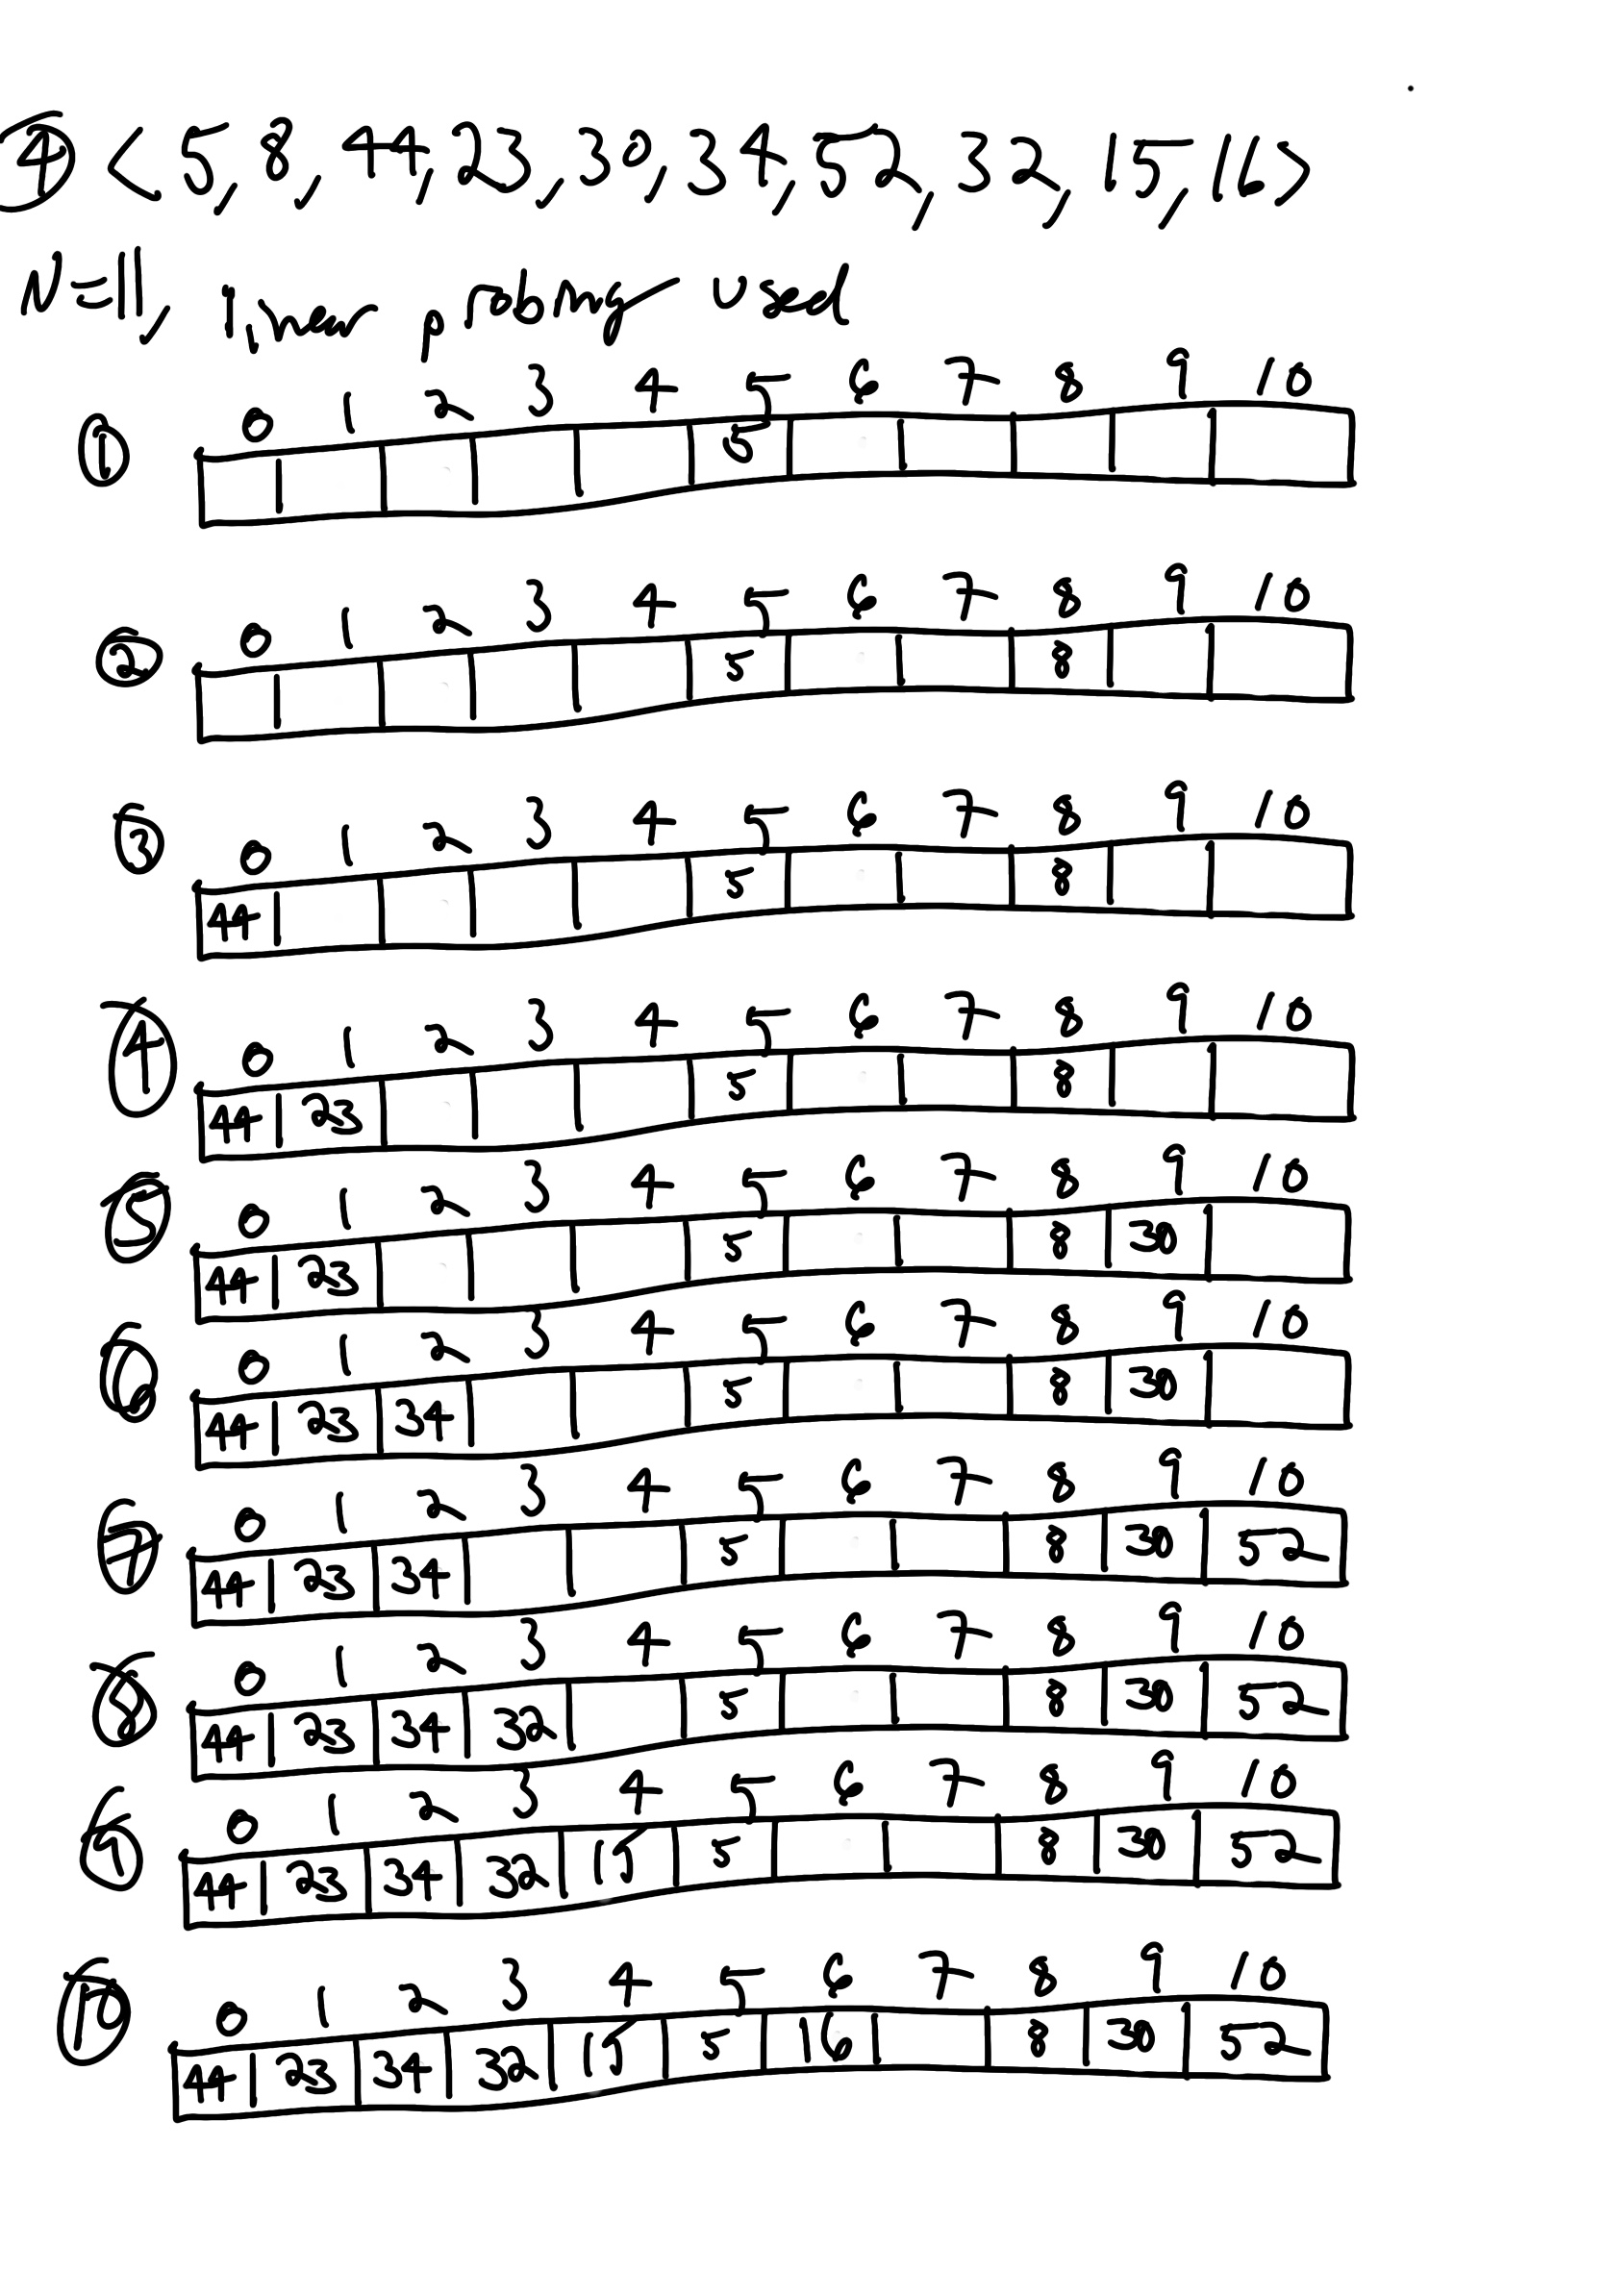 ④ < 5, 8, 44, 23, 30, 34, 52, 32, 15, 16 >
N=11, linear probing used
0 1 2 3 4 5 6 7 8 9 10
① 5
0 1 2 3 4 5 6 7 8 9 10
② 5 8
0 1 2 3 4 5 6 7 8 9 10
③ 44 5 8
0 1 2 3 4 5 6 7 8 9 10
④ 44 23 5 8
0 1 2 3 4 5 6 7 8 9 10
⑤ 44 23 5 8 30
0 1 2 3 4 5 6 7 8 9 10
⑥ 44 23 34 5 8 30
0 1 2 3 4 5 6 7 8 9 10
⑦ 44 23 34 5 8 30 52
0 1 2 3 4 5 6 7 8 9 10
⑧ 44 23 34 32 5 8 30 52
0 1 2 3 4 5 6 7 8 9 10
⑨ 44 23 34 32 15 5 8 30 52
0 1 2 3 4 5 6 7 8 9 10
⑩ 44 23 34 32 15 5 16 8 30 52